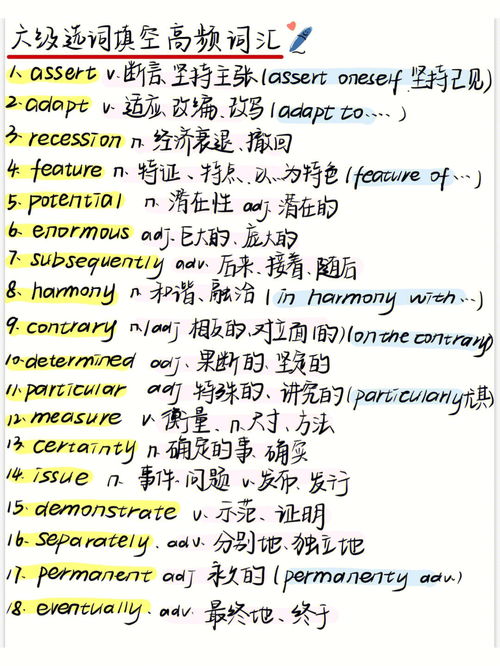 六级选词填空高频词汇
1. assert v. 断言、坚持主张(assert oneself 坚持己见)
2. adapt v. 适应、改编、改写(adapt to.....)
3. recession n. 经济衰退、撤回
4. feature n. 特证、特点、以…为特色(feature of...)
5. potential n. 潜在性 adj. 潜在的
6. enormous adj. 巨大的、庞大的
7. subsequently adv. 后来、接着、随后
8. harmony n. 和谐、融洽(in harmony with...)
9. contrary n./adj 相反的、对立面(的)(on the contrary)
10. determined adj. 果断的、坚定的
11. particular adj 特殊的、讲究的(particularly尤其)
12. measure v. 衡量、n. 尺寸、方法
13. certainty n. 确定的事、确实
14. issue n. 事件、问题 v. 发布、发行
15. demonstrate v. 示范、证明
16. separately. adv. 分别地、独立地
17. permanent adj 永久的(permanenty adv.)
18. eventually. adv. 最终地、终于